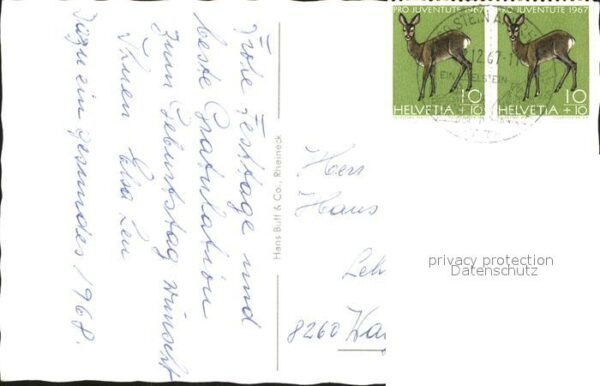 Frohe Festtage und
beste Gratulation
zum Geburtstag wünscht
Ihnen Elsa
Dazu ein gesundes 1968.
Hans Buff & Co., Rheineck
Herr
Hans
8260
PRO JUVENTUTE 1967
10
HELVETIA +10
PRO JUVENTUTE 1967
10
HELVETIA +10
12.67
privacy protection
Datenschutz